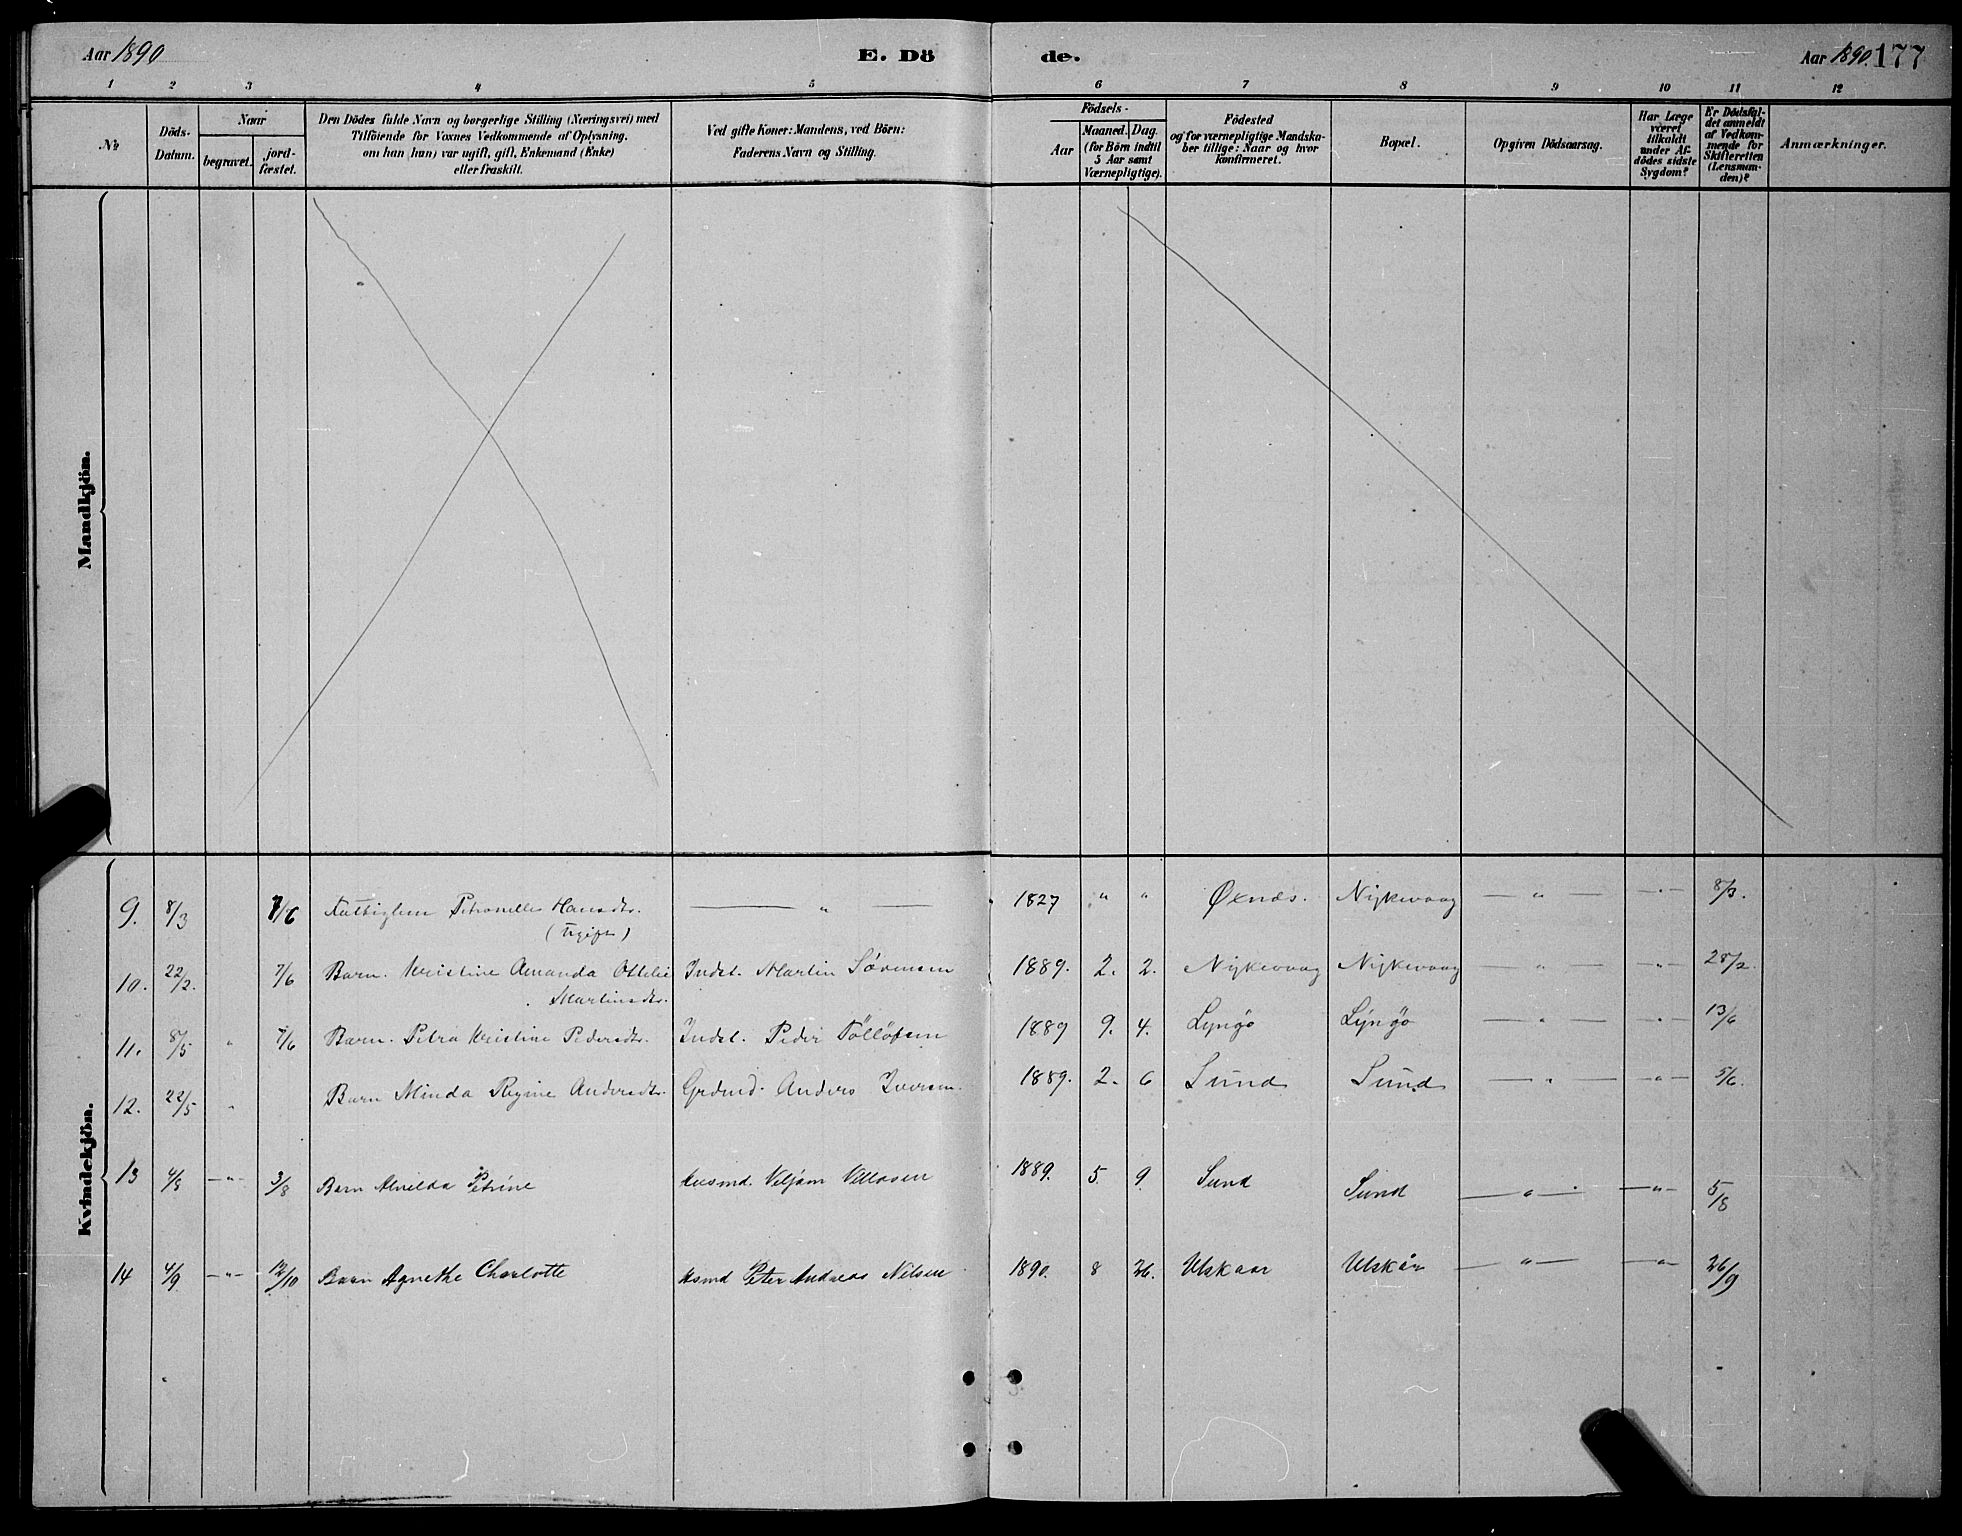 Aar 1890 E. Dö de. Aar 1890. 177
1 2 3 4 5 6 7 8 9 10 11 12
№
Döds-Datum.
Naar
begravet.
jord-fæstet.
Den Dödes fulde Navn og borgerlige Stilling (Næringsvei) med
Tilföiende for Voxnes Vedkommende af Oplysning.
om han (hun) var ugift, gift, Enkemand (Enke)
eller fraskilt.
Ved gifte Koner: Mandens, ved Börn:
Faderens Navn og Stilling.
Födsels-
Aar
Maaned. Dag.
(for Börn indtil
5 Aar samt
Værnepligtige).
Födested
og for værnepligtige Mandska-
ber tillige: Naar og hvor
konfirmeret.
Bopæl.
Opgiven Dödsaarsag.
Har Læge
været
tilkaldt
under Af-
dödes sidste
Sygdom?
Er Dödsfal-
det anmeldt
af Vedkom-
mende for
Skifteretten
(Lensman-
den)?
Anmærkninger.
Mandkjön.
Kvindekjön.
9. 8/3 7/6 Petronelle Hansdtr. — " — 1827 " " Øxnds. Nykvaag — " — — " — 8/3.
(Ugift)
10. 22/2. 7/6 Barn. Kristine Amanda Ottelie Indst. Martin Sörensen 1889. 2. 2. Nykvaag Nykvaag — " — — " — 28/2.
Martinsdtr.
11. 8/5 " 7/6 Barn. Petra Kristine Pedersdtr. Indst. Peder Töllöfsen 1889 9. 4. Lyngö Lyngö — " — — " — 13/6
12. 22/5 " Barn Minda Regine Andersdtr. Grdmd. Anders Iversen. 1889. 2. 6 Sund Sund — " — — " — 5/6.
13 4/8 — " — 3/8 Barn Alvilda Petrine Husmd. Viljam 1889. 5 9. Sund Sund — " — — " — 5/18
14 4/9 — " — 12/10 Barn Agnethe Charlotte Husmd Peter Andreas Nilsen 1890. 8 26. Ulskaar Ulskår — " — — " — 26/9